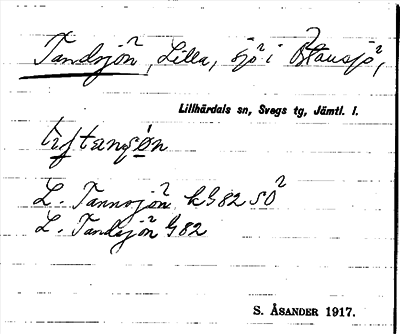 Tandsjön, Lilla, sjö i Blåusjö,
Lillhärdals sn, Svegs tg, Jämtl. l.
L. Tannsjön kG82 SO
L. Tandsjön G82
S. ÅSANDER 1917.